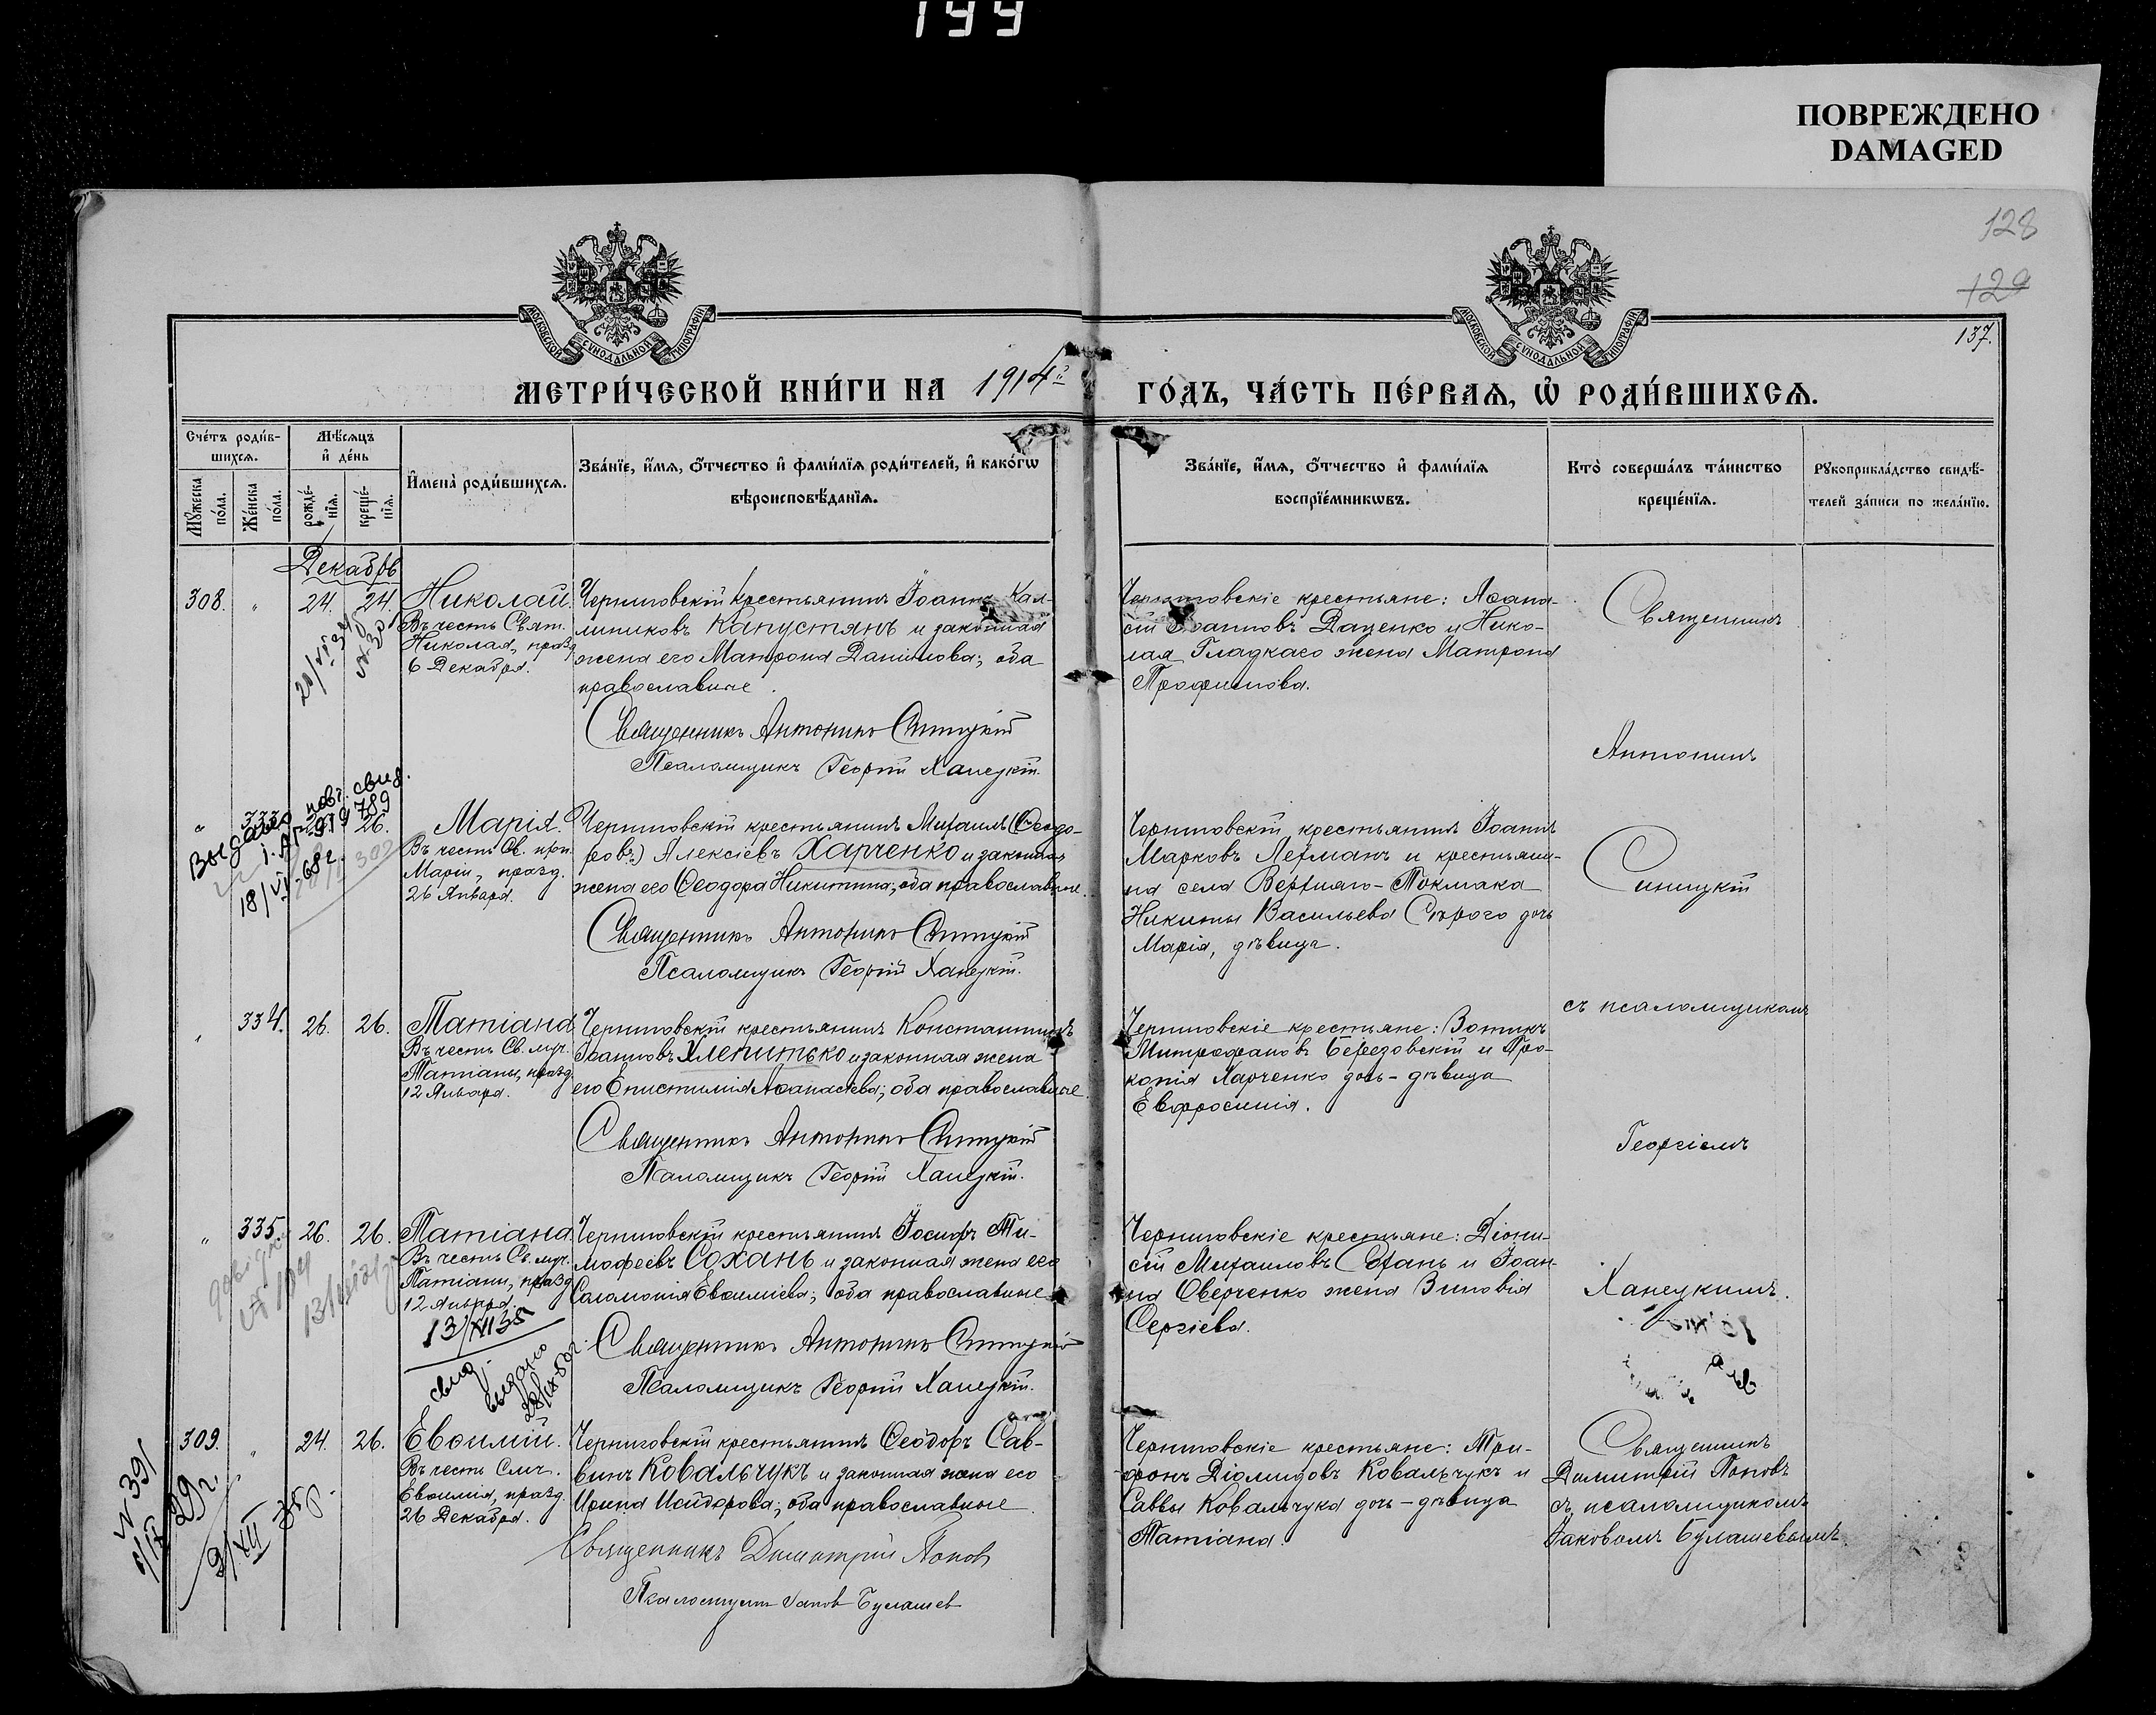 199
ПОВРЕЖДЕНО
DAMAGED
128
129
137.
МОСКОВСКОЙ СѴНОДАЛЬНОЙ ТИПОГРАФІИ
МОСКОВСКОЙ СѴНОДАЛЬНОЙ ТИПОГРАФІИ
МЕТРИ́ЧЕСКОЙ КНИ́ГИ НА 1914й ГО́ДЪ, ЧА́СТЬ ПЕ́РВАѦ, Ѡ҆ РОДИ́ВШИХСѦ.
Сче́тъ роди́в-
шихсѧ.
Мѣ́сѧцъ
и҆ де́нь
Мꙋ́жеска
по́ла.
Же́нска
по́ла.
рожде́-
нїѧ.
креще́-
нїѧ.
И҆мена̀ роди́вшихсѧ.
Зва́нїе, и҆́мѧ, ѻ҆́тчество и҆ фами́лїѧ роди́телей, и҆ како́гѡ
вѣроисповѣ́данїѧ.
Зва́нїе, и҆́мѧ, ѻ҆́тчество и҆ фами́лїѧ
воспрїе́мникѡвъ.
Кто̀ соверша́лъ та́инство
креще́нїѧ.
Рꙋкоприкла́дство свидѣ́-
телей за́писи по жела́нїю.
Декабрь
308. „ 24. 24.
Николай.
Въ честь Свят.
Николая, празд.
6 Декабря.
Черниговскій крестьянинъ Іоаннъ Кал-
линиковъ Капустянъ и законная
жена его Матрона Даніилова; оба
православные.
Священникъ Антонинъ Синицкій
Псаломщикъ Георгій Ханецкій.
Черниговскіе крестьяне: Аѳана-
сій Іоанновъ Даценко и Нико-
лая Гладкаго жена Матрона
Трофимова.
Священникъ
Антонинъ
Синицкій
съ псаломщикомъ
Георгіемъ
Ханецкимъ.
„ 333. 26.
Выдано повт. свид.
18/VI-68г.
Марія.
Въ честь Св. прп.
Маріи, празд.
26 Января.
Черниговскій крестьянинъ Михаилъ (Ѳеодо-
ровъ) Алексіевъ Харченко и законная
жена его Ѳеодора Никитина; оба православные.
Священникъ Антонинъ Синицкій
Псаломщикъ Георгій Ханецкій.
Черниговскій крестьянинъ Іоаннъ
Марковъ Лехманъ и крестьяни-
на села Верхняго-Токмака
Никиты Васильева Сѣраго дочь
Марія, дѣвица.
„ 334. 26. 26.
Татіана
Въ честь Св. муч.
Татіаны, празд.
12 Января.
Черниговскій крестьянинъ Константинъ
Іоанновъ Хлепитько и законная жена
его Епистимія Аѳанасіева; оба православные.
Священникъ Антонинъ Синицкій
Псаломщикъ Георгій Ханецкій.
Черниговскіе крестьяне: Вотикъ
Митрофановъ Березовскій и Про-
копія Харченко дочь-дѣвица
Евфросинія.
„ 335. 26. 26.
Татіана.
Въ честь Св. муч.
Татіаны, празд.
12 Января.
13/XII 35
свид.
выдано
Черниговскій крестьянинъ Іосифъ Ти-
моѳеевъ Сохань и законная жена его
Саломонія Евѳиміева; оба православные
Священникъ Антонинъ Синицкій
Псаломщикъ Георгій Ханецкій.
Черниговскіе крестьяне: Діони-
сій Михаиловъ Сохань и Іоан-
на Оверченко жена Зиновія
Сергіева.
309. „ 24. 26.
N 391
29г.
9/XII 35
Евѳимій.
Въ честь Смч.
Евѳимія, празд.
26 Декабря.
Черниговскій крестьянинъ Ѳеодоръ Сав-
винъ Ковальчукъ и законная жена его
Ирина Исидорова; оба православные
Священникъ Димитрій Поповъ
Псаломщикъ Іаковъ Булашев
Черниговскіе крестьяне: Три-
фонъ Діомидовъ Ковальчукъ и
Саввы Ковальчука дочь-дѣвица
Татіана.
Священникъ
Димитрій Поповъ
съ псаломщикомъ
Іаковомъ Булашевымъ.